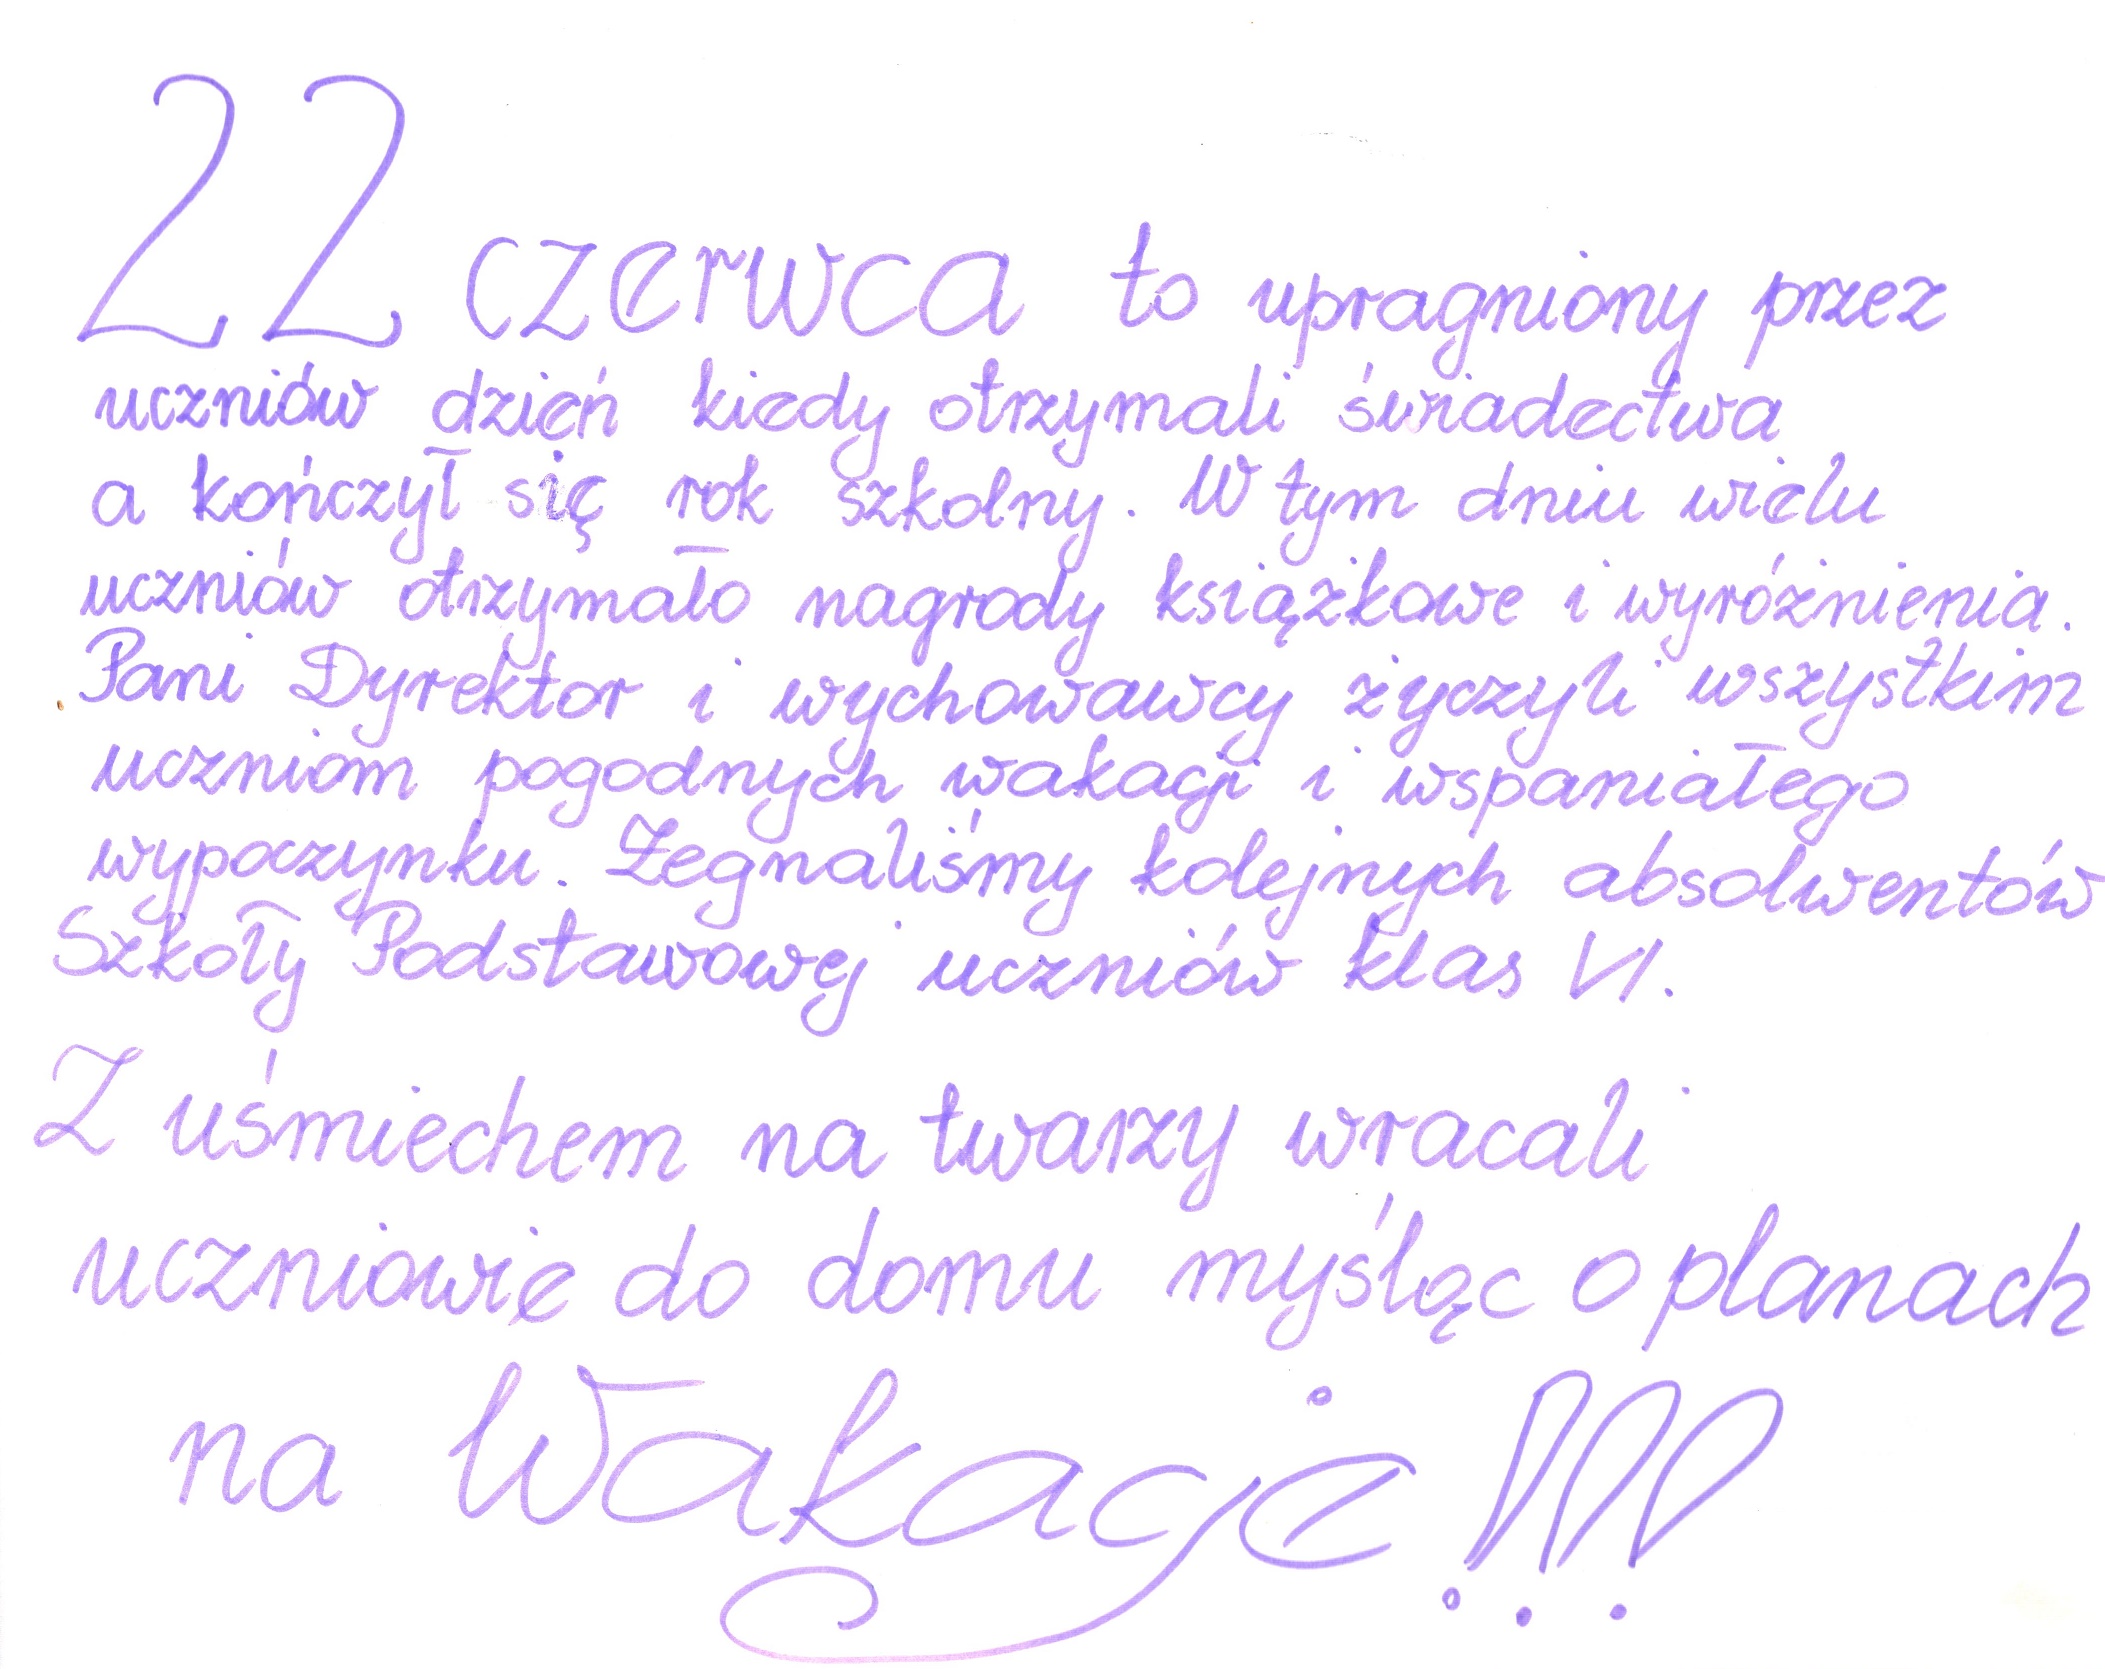 22 czerwca to upragniony przez
uczniów dzień kiedy otrzymali świadectwa
a kończył się rok szkolny. W tym dniu wielu
uczniów otrzymało nagrody książkowe i wyróżnienia.
Pani Dyrektor i wychowawcy życzyli wszystkim
uczniom pogodnych wakacji i wspaniałego
wypoczynku. Żegnaliśmy kolejnych absolwentów
Szkoły Podstawowej uczniów klas VI.
Z uśmiechem na twarzy wracali
uczniowie do domu myśląc o planach
na Wakacje!!!